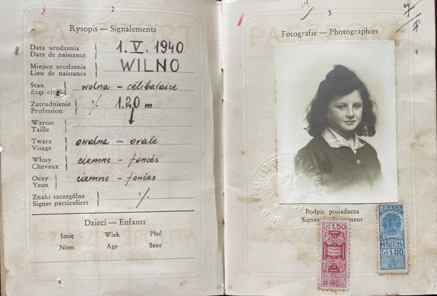 2
Rysopis — Signalements
Data urodzenia
Date de naissance
1. V. 1940
Miejsce urodzenia
Lieu de naissance
WILNO
Stan
Etat civil
wolna - célibataire
Zatrudnienie
Profession
1.20 m
Wzrost
Taille
Twarz
Visage
owalna - ovale
Włosy
Cheveux
ciemne - foncés
Oczy
Yeux
ciemne - foncés
Znaki szczególne
Signes particuliers
Dzieci — Enfants
Imię Wiek Płeć
Nom Age Sexe
3
Fotografie — Photographies
Podpis posiadacza
1.50
BRASIL